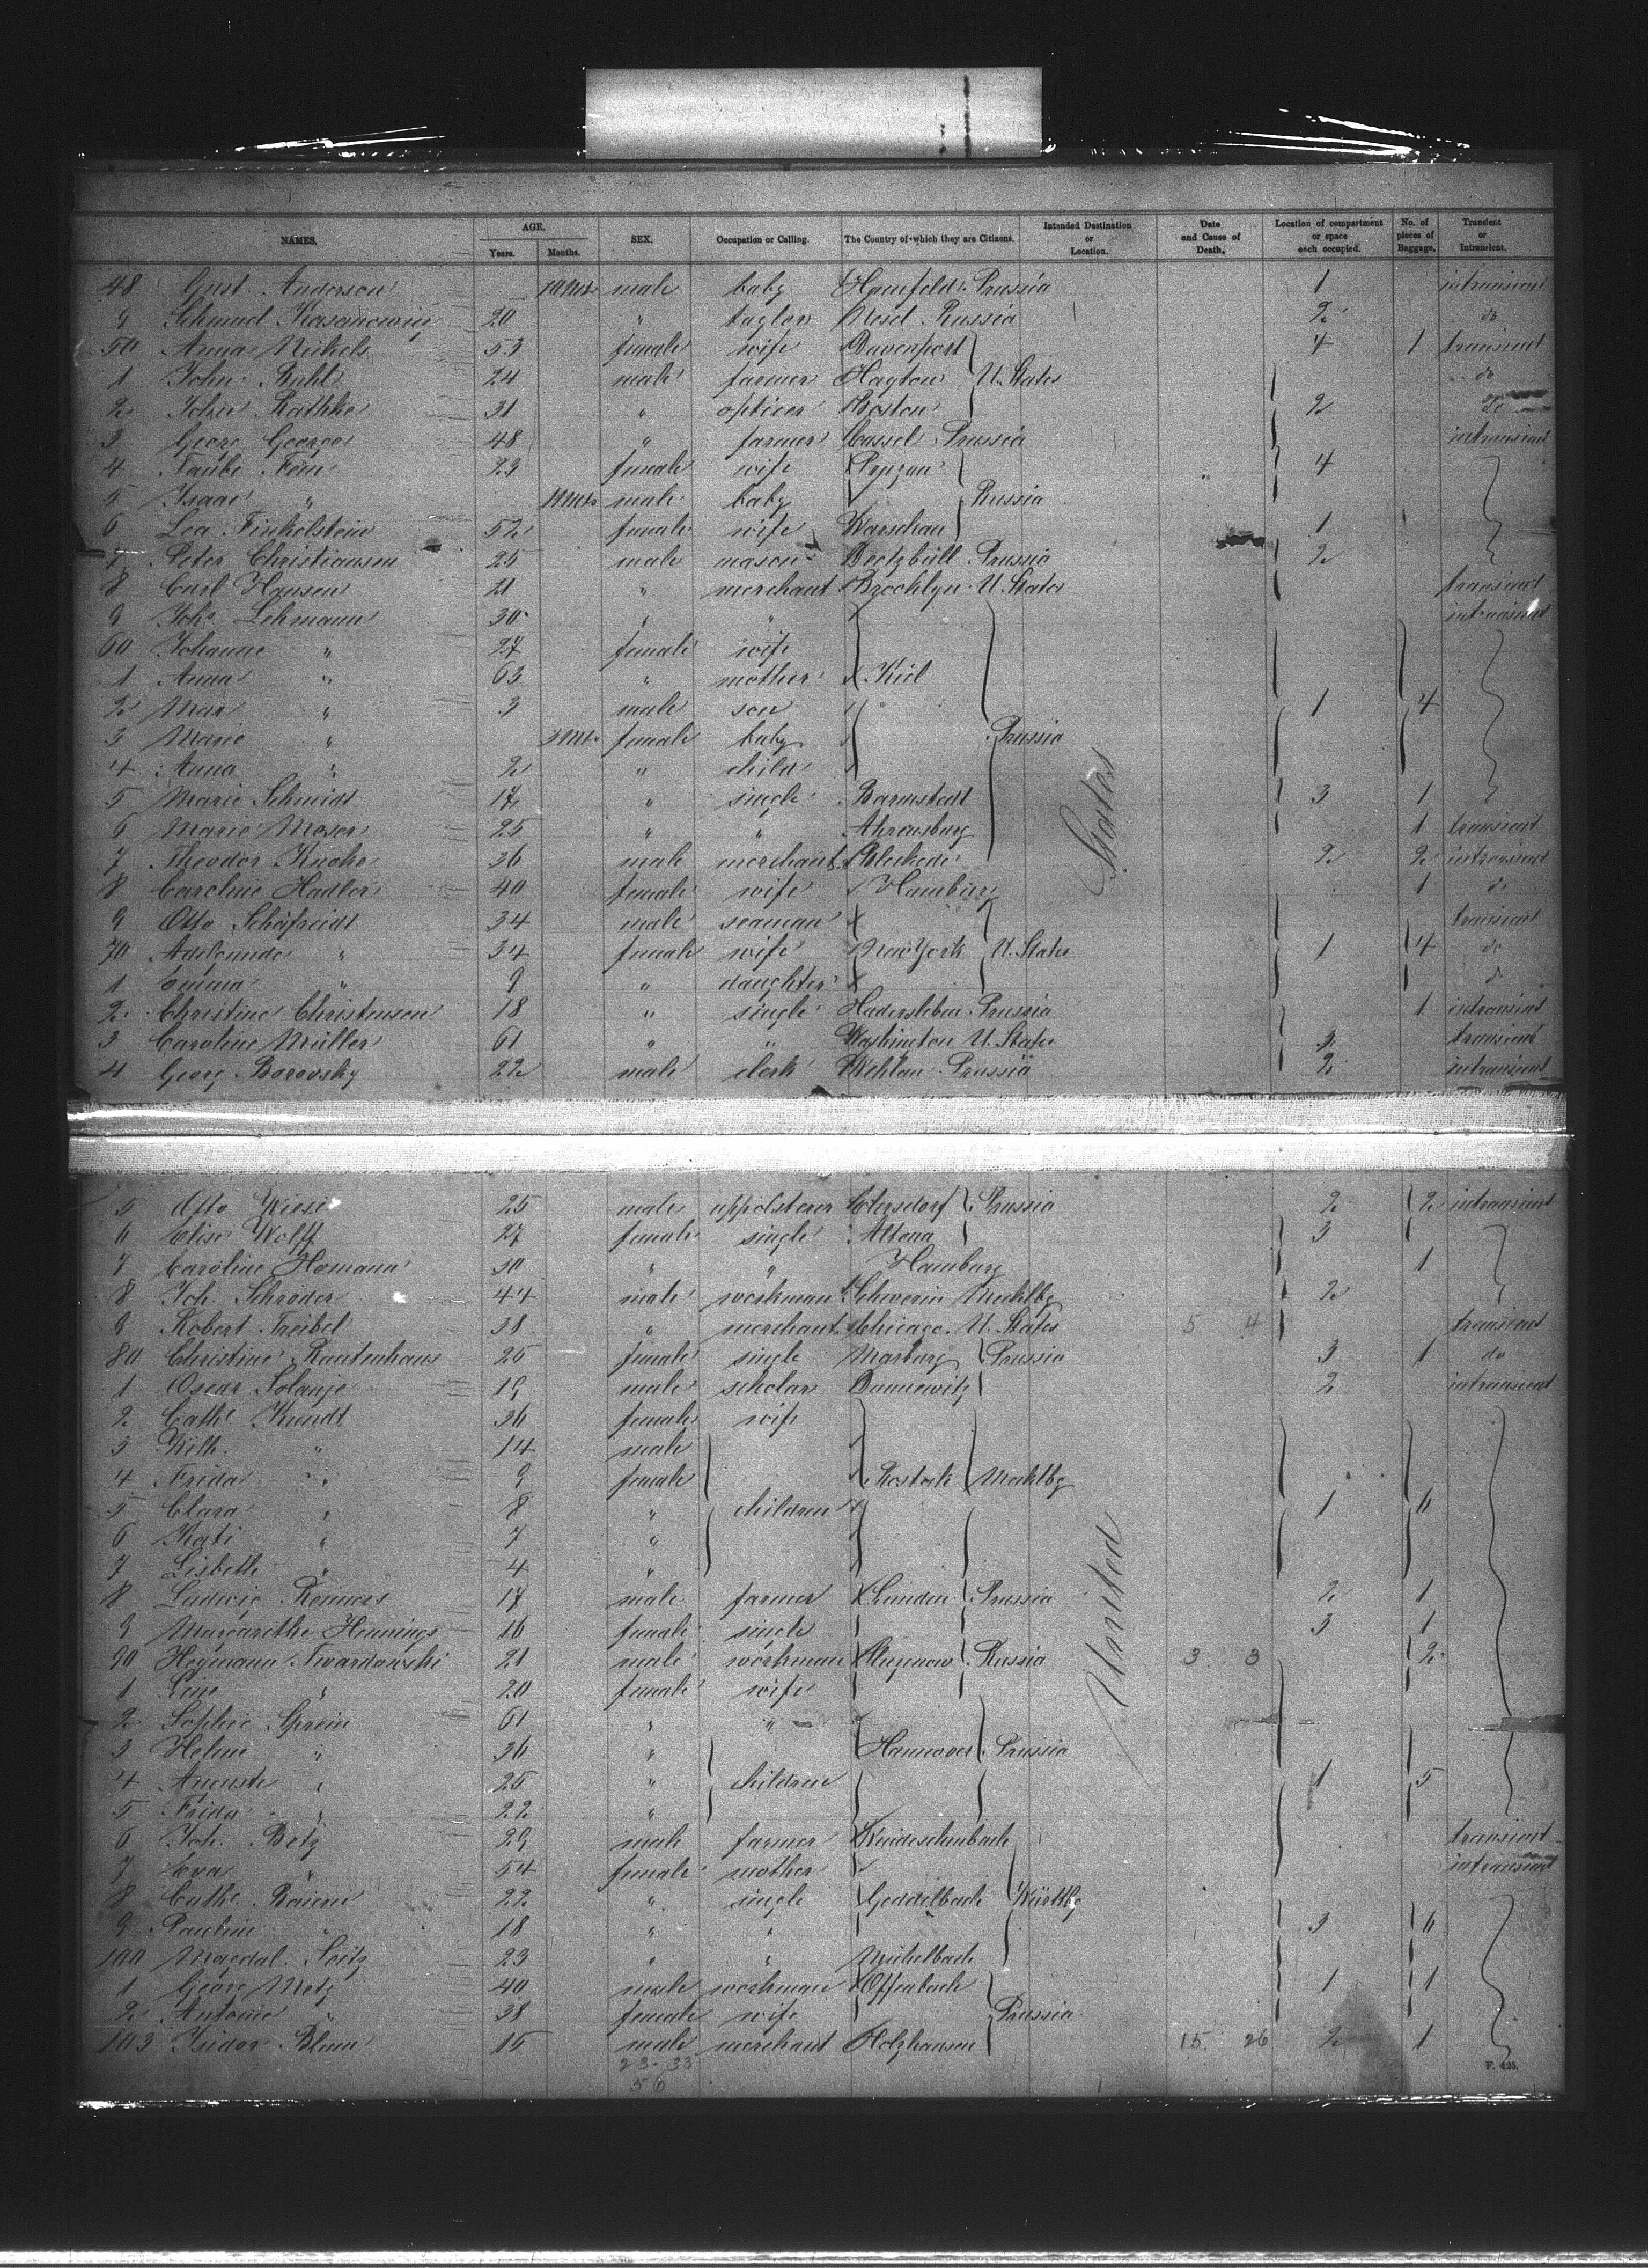 NAMES. AGE. Years. Months. SEX. Occupation or Calling. The Country of which they are Citizens. Intended Destination or Location. Date and Cause of Death. Location of compartment or space each occupied. No. of pieces of Baggage. Transient or Intransient.
48 Gust. Anderson male baby Prussia 1 intransient
9 20 " taylor Russia 2 do
50 Anna Michels 53 female wife Davenport 4 1 transient
1 John Ruhl 24 male farmer Hayton U. States do
2 John Rathke 31 " Boston 2 do
3 Georg George 48 " farmer Cassel Prussia intransient
4 Taube 23 female wife 4
5 Isaac " male baby Russia
6 Lea Finkelstein 52 female wife Warschau 1
7 Peter Christiansen 25 male mason Deetzbüll Prussia 2
8 Carl Hansen 21 " merchant Brooklyn U. States transient
9 Johs Lehmann 30 " " intransient
60 Johanne " 27 female wife
1 Anna " 63 " mother Kiel
2 Max " 3 male son 1 4
3 Marie " 3 Mts. female baby Prussia
4 Anna " 2 " child
5 Marie Schmidt 17 " single Barmstedt 3 1
6 Marie Moser 25 " " Ahrensburg 1 transient
7 Theodor 36 male merchant 2 2 intransient
8 Caroline Hadler 40 female wife Hamburg 1 do
9 Otto 34 male seaman transient
70 Adelgunde " 34 female wife New York U. States 1 4 do
1 Emma " 9 " daughter do
2 Christine Christensen 18 " single Hadersleben Prussia 1 intransient
3 Caroline Müller 61 " " Washington U. States 3 transient
4 Georg Borovsky 22 male clerk Wehlau Prussia 2 intransient
States
5 Otto Wiese 25 male uppolsterer Prussia 2 2 intransient
6 Elise Wolff 27 female single Altona 3
7 Caroline Homann 30 " " Hamburg 1
8 Joh. Schröder 44 male workman Schwerin Mecklbg 2
9 Robert Treibel 38 " merchant Chicago U. States 5 4 transient
80 Christine Rautenhaus 25 female single Marburg Prussia 3 1 do
1 Oscar Solanje 19 male scholar 2 intransient
2 Cathe Kundt 36 female wife
3 Wilh. " 14 male
4 Frida " 9 female Rostock Mecklbg
5 Clara " 8 " children 1 6
6 Kati " 7 "
7 Lisbeth " 4 "
8 Ludwig Reimers 17 male farmer Lunden Prussia 2 1
9 Margarethe Hennings 16 female single 3 1
90 Heymann Twardowski 21 male workman Russia 3 3 2
1 Lene " 20 female wife
2 Sophie 61 " "
3 Helene " 36 " Hannover Prussia
4 Auguste " 25 " children 1 5
5 Frida " 22 "
6 Joh. Betz 29 male farmer transient
7 Eva " 54 female mother intransient
8 Cathe 22 " single Württbg
9 Pauline " 18 " " 3 6
100 Magdal. Seitz 23 " " Michelbach
1 Georg Metz 40 male workman Offenbach 1 1
2 Antonie " 38 female wife Prussia
103 Isidor Blum 15 male merchant Holzhausen 15 26 2 1
United
23 33
56
F. 425.